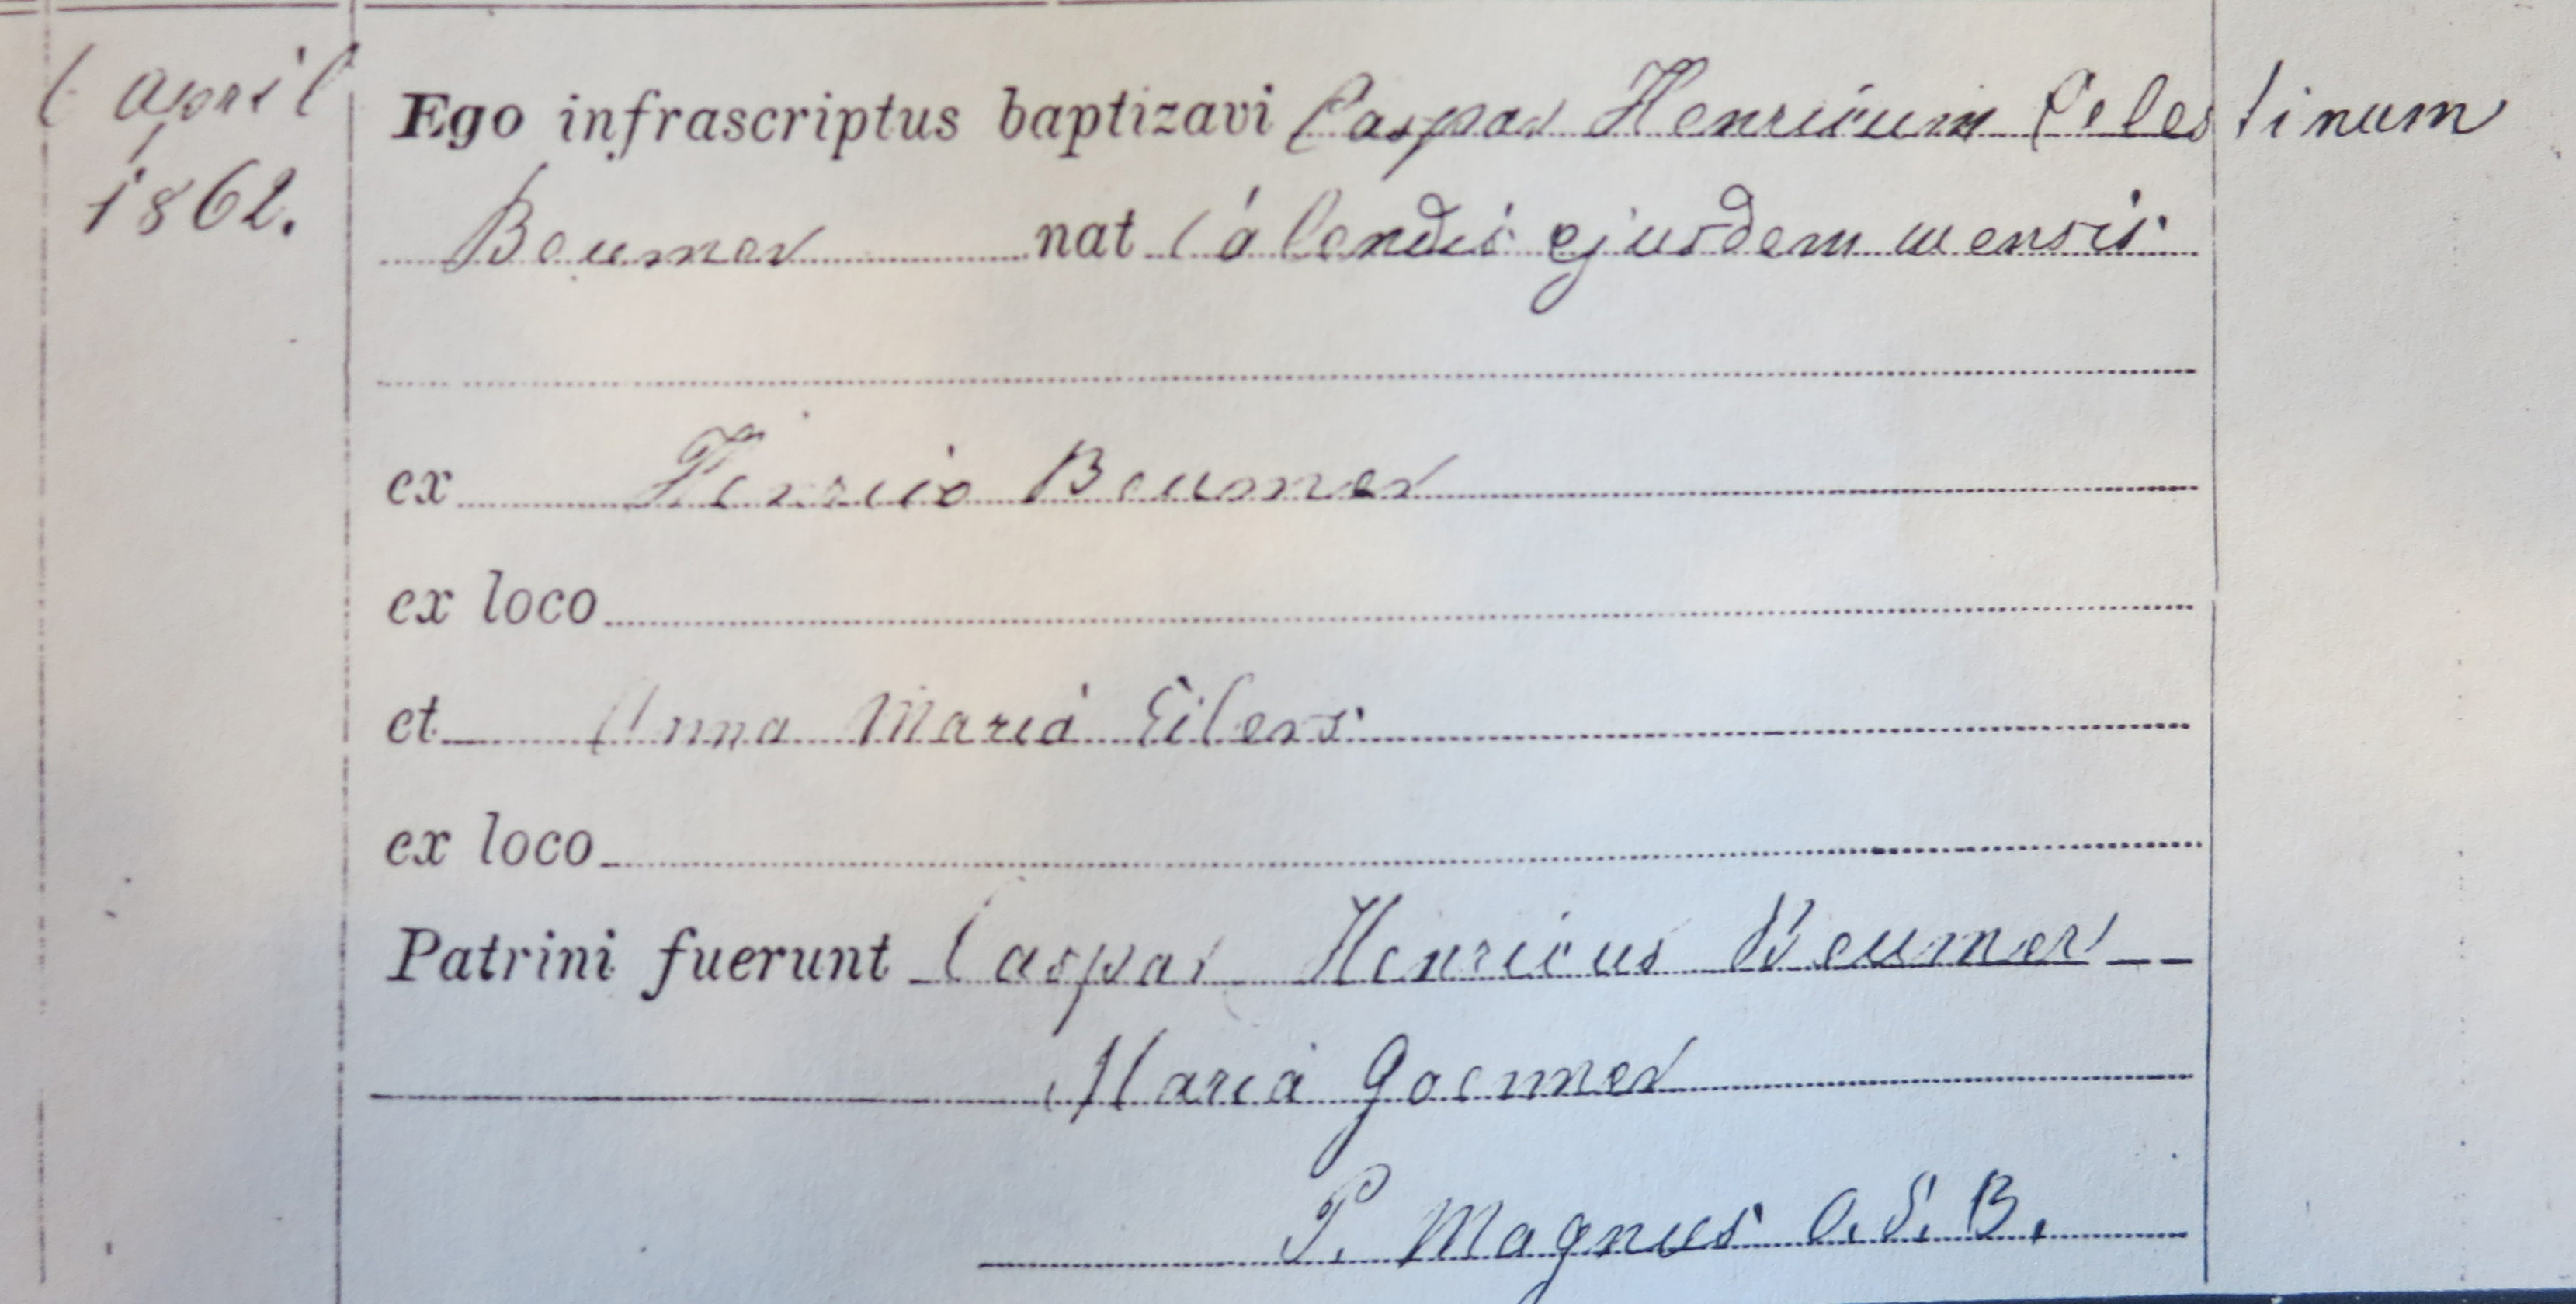 6 April
1862.
Ego infrascriptus baptizavi Caspar Henricum Celestinum
Beumer nat Calendis ejusdem mensis
ex Henrico Beumer
ex loco
et Anna Maria Eilers
ex loco
Patrini fuerunt Caspar Henricus Beumer
Maria Goemer
P. Magnus O. S. B.